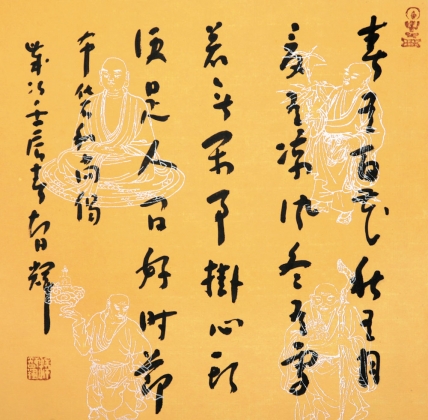 春有百花秋有月
夏有凉风冬有雪
若无闲事掛心头
便是人间好时節
和尚偈
歲次壬辰春智輝